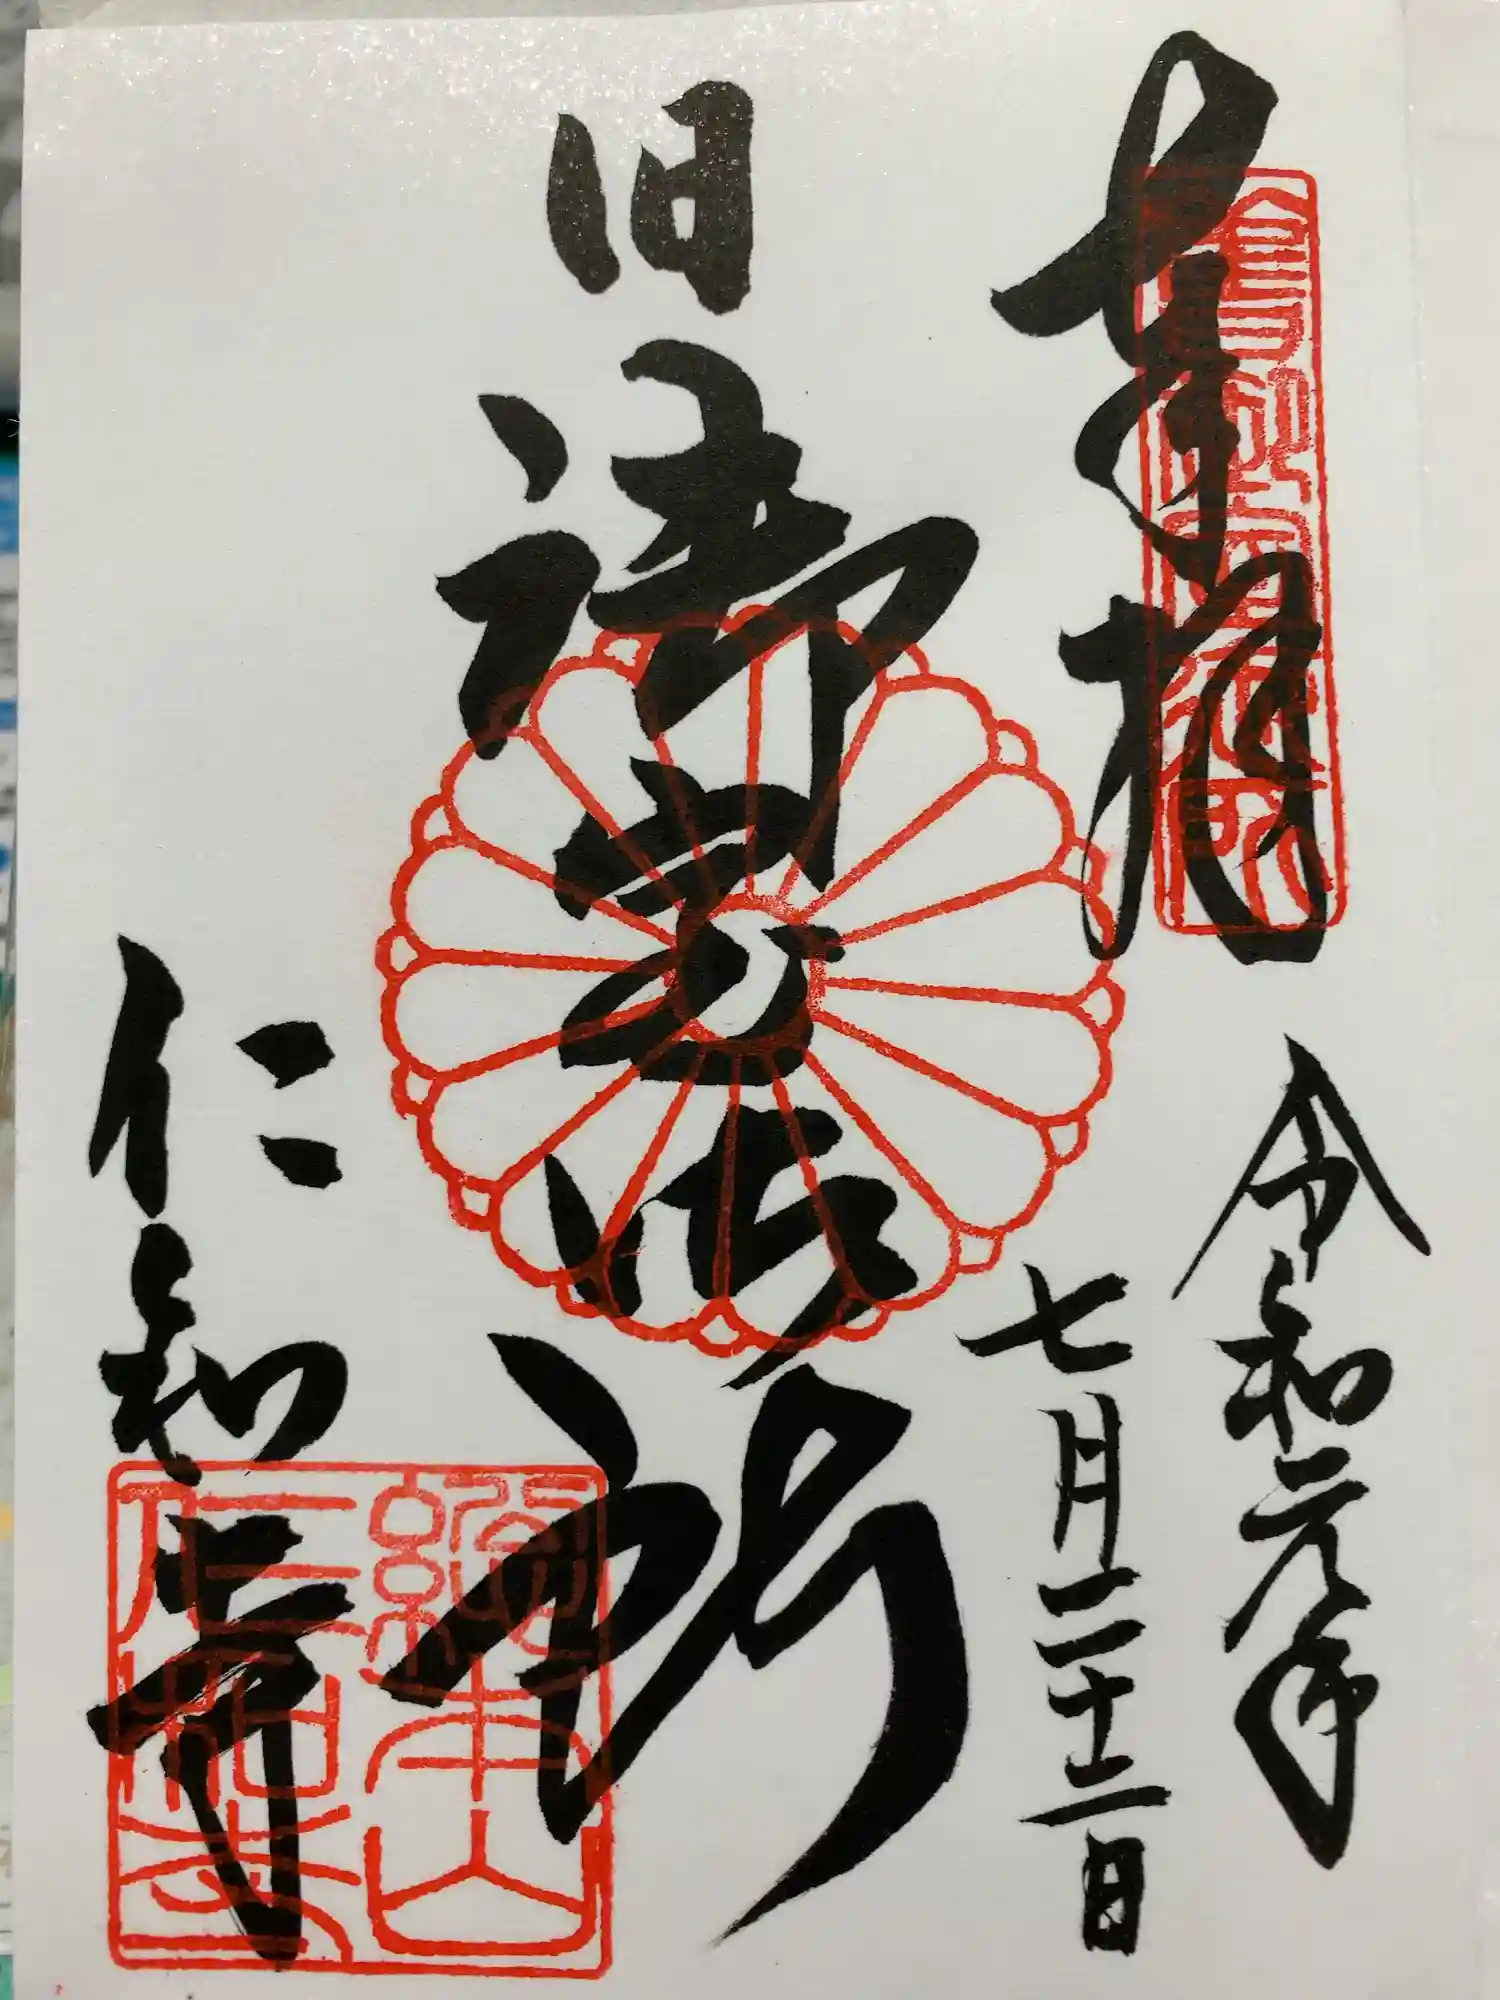 奉拝
令和元年
七月二十二日
旧御室御所
仁和寺
総本山
仁和寺